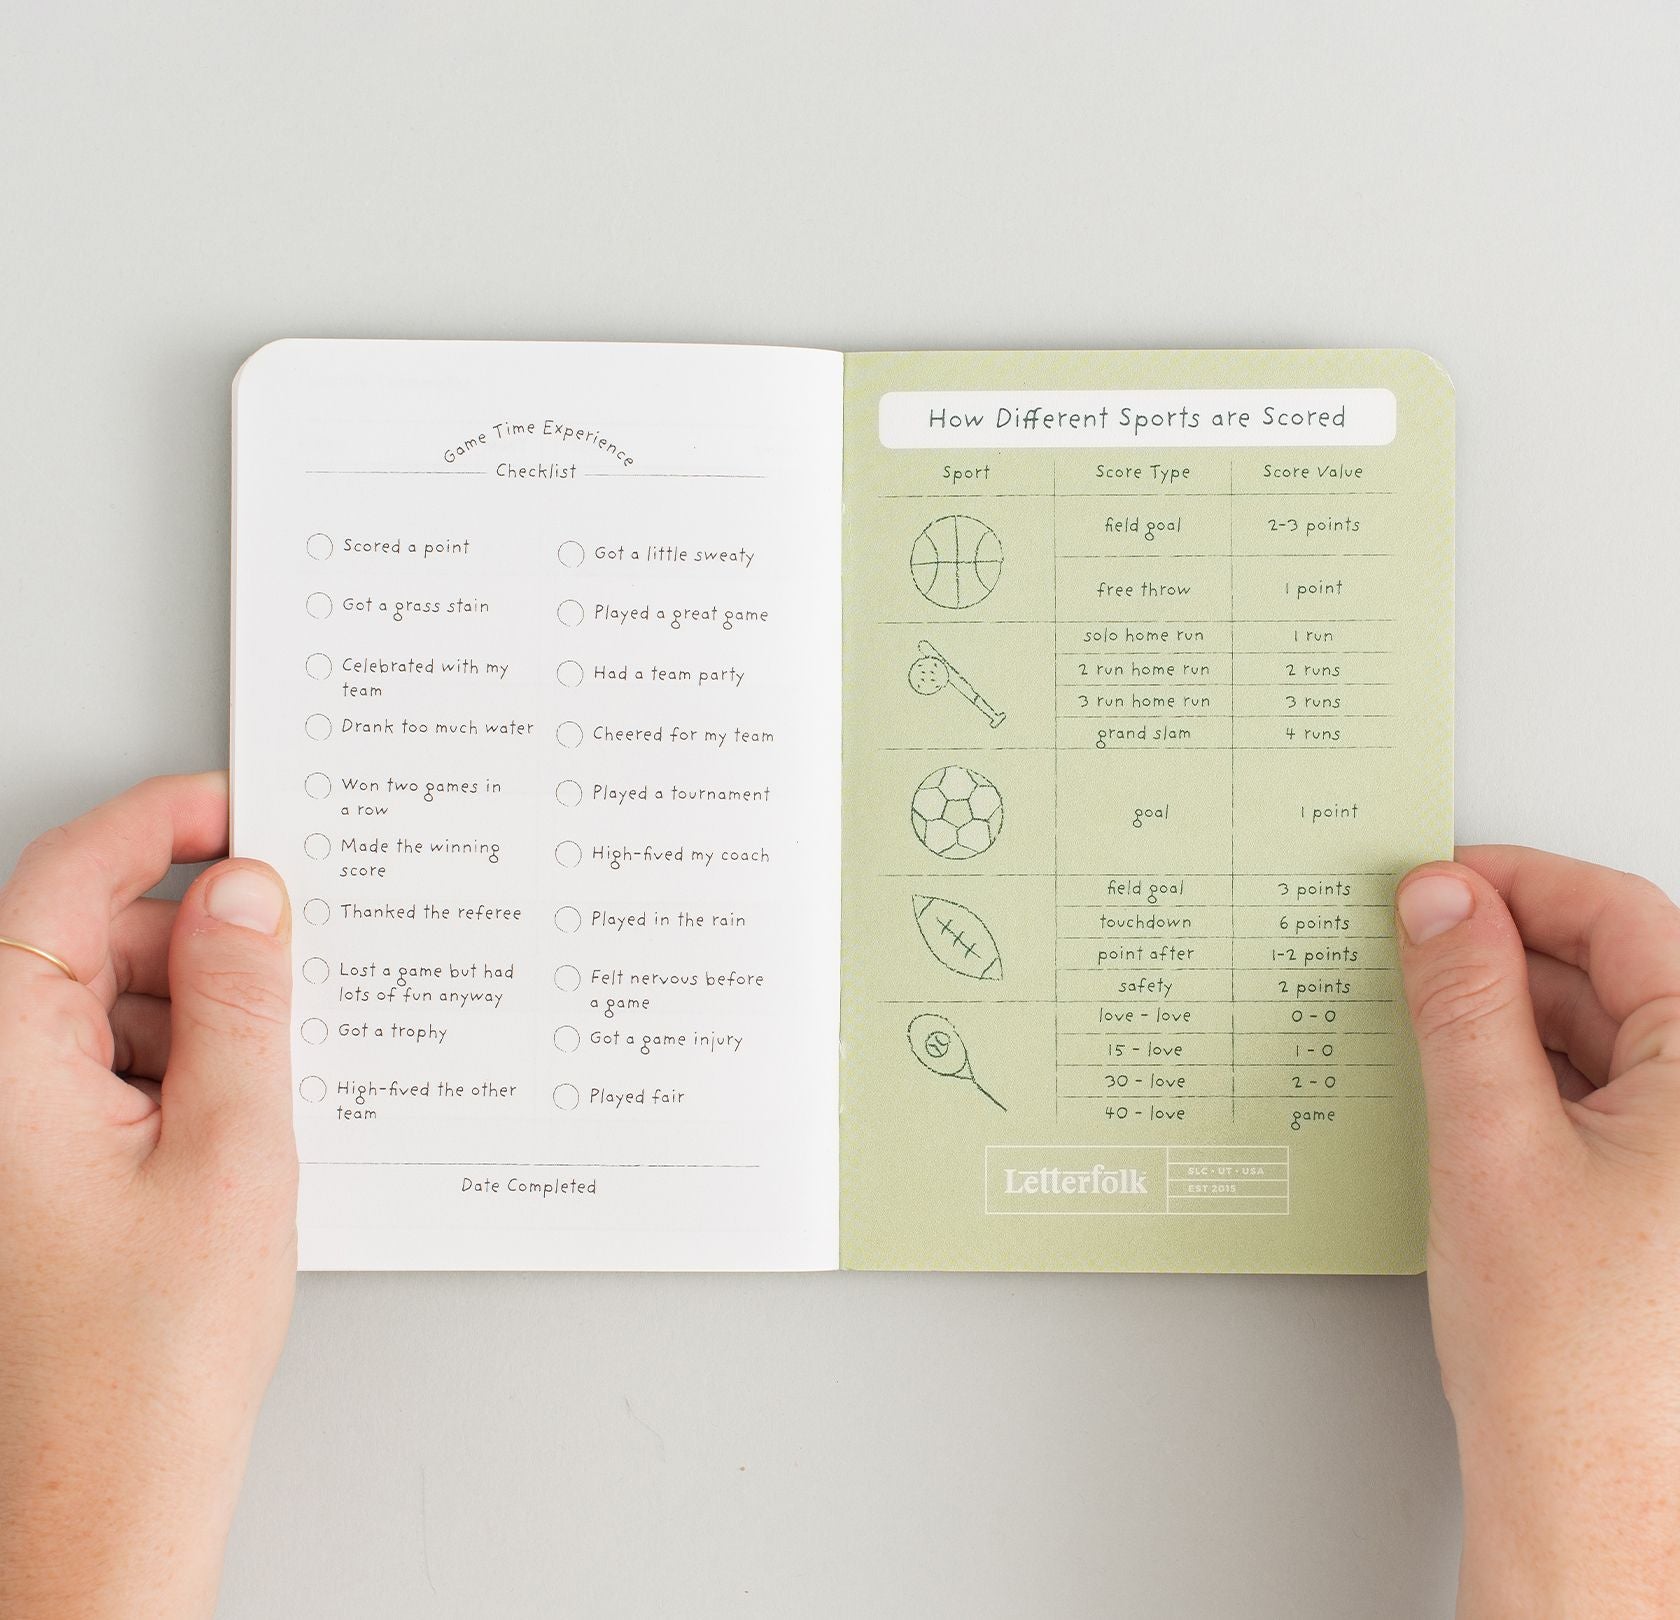 Game Time Experience
Checklist
Scored a point
Got a grass stain
Celebrated with my
team
Drank too much water
Won two games in
a row
Made the winning
score
Thanked the referee
Lost a game but had
lots of fun anyway
Got a trophy
High-fived the other
team
Got a little sweaty
Played a great game
Had a team party
Cheered for my team
Played a tournament
High-fived my coach
Played in the rain
Felt nervous before
a game
Got a game injury
Played fair
Date Completed
How Different Sports are Scored
Sport Score Type Score Value
field goal 2-3 points
free throw 1 point
solo home run 1 run
2 run home run 2 runs
3 run home run 3 runs
grand slam 4 runs
goal 1 point
field goal 3 points
touchdown 6 points
point after 1-2 points
safety 2 points
love - love 0 - 0
15 - love 1 - 0
30 - love 2 - 0
40 - love game
Letterfolk
SLC • UT • USA
EST 2015